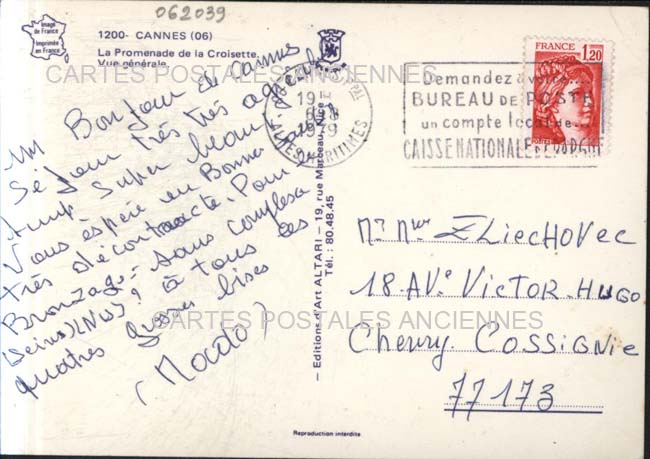 062039
Image de France
Imprimée en France
1200- CANNES (06)
La Promenade de la Croisette.
Vue générale.
CARTES POSTALES ANCIENNES
Un Bonjour de Cannes
Séjour très très agréable
temps super beau
Vous espère en Bonne
très décontracté. Pour
Bronzage. Sans complexe
(Seins) (NUS) ! à tous les
quatres grosses bises
(Mado)
- Editions d'Art ALTARI - 19, rue Marceau, Nice
Tél. : 80.48.45
CANNES PPAL
19 H
1979
ALPES-MARITIMES
Demandez à votre
BUREAU DE POSTE
un compte local de
CAISSE NATIONALE D'EPARGNE
FRANCE 1,20
POSTES
Mr Mme ZLIECHOVEC
18 AVe VICTOR-HUGO
Cheury COSSIGNIE
77173
CARTES POSTALES ANCIENNES
Reproduction interdite